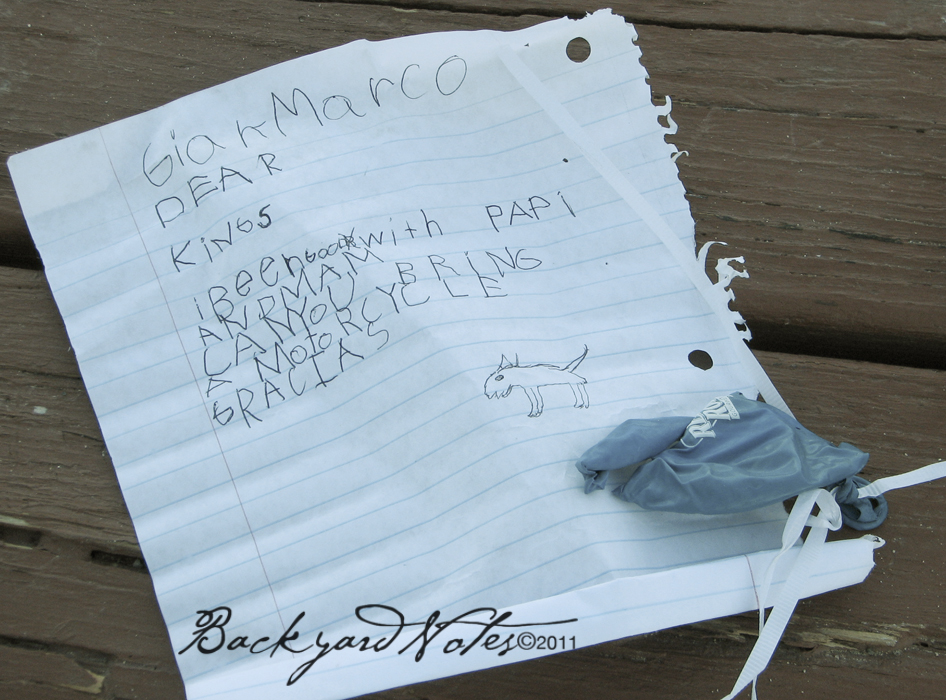 GianMarco
DEAR
KiNGS
iBeen good with PAPi
ANDMAM
CANYOU BRING
A MOTORCYCLE
GRACIAS
Backyard Notes©2011